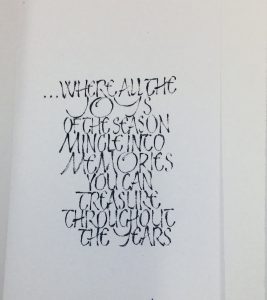 ...WHERE ALL THE
JOYS
OF THE SEASON
MINGLE INTO
MEMORIES
YOU CAN
TREASURE
THROUGHOUT
THE YEARS